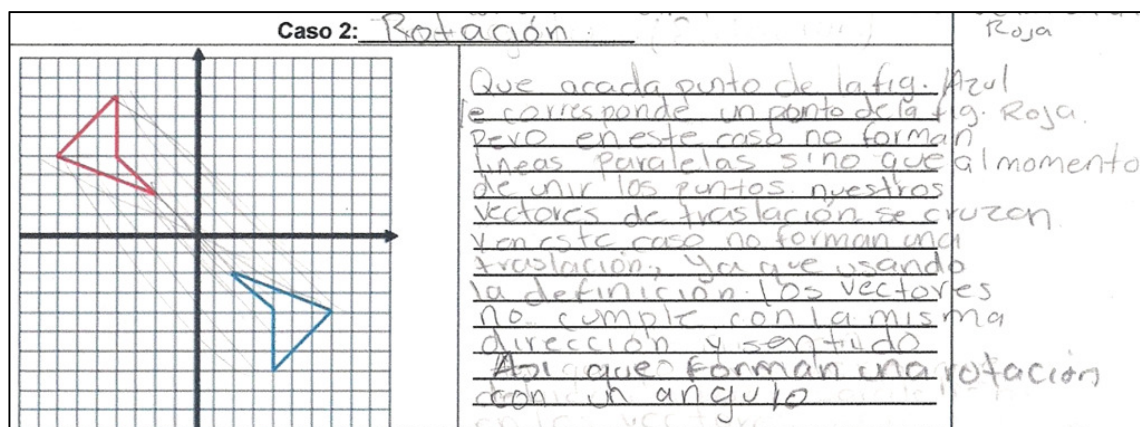 Caso 2: Rotación
Roja
Que acada punto de la fig. Azul
le corresponde un ponto de la fig. Roja.
pero en este caso no forman
líneas paralelas sino que al momento
de unir los puntos nuestros
vectores de traslación se cruzan
y en este caso no forman una
traslación, ya que usando
la definición los vectores
no cumple con la misma
dirección y sentido
Asi que forman una rotación
con un angulo